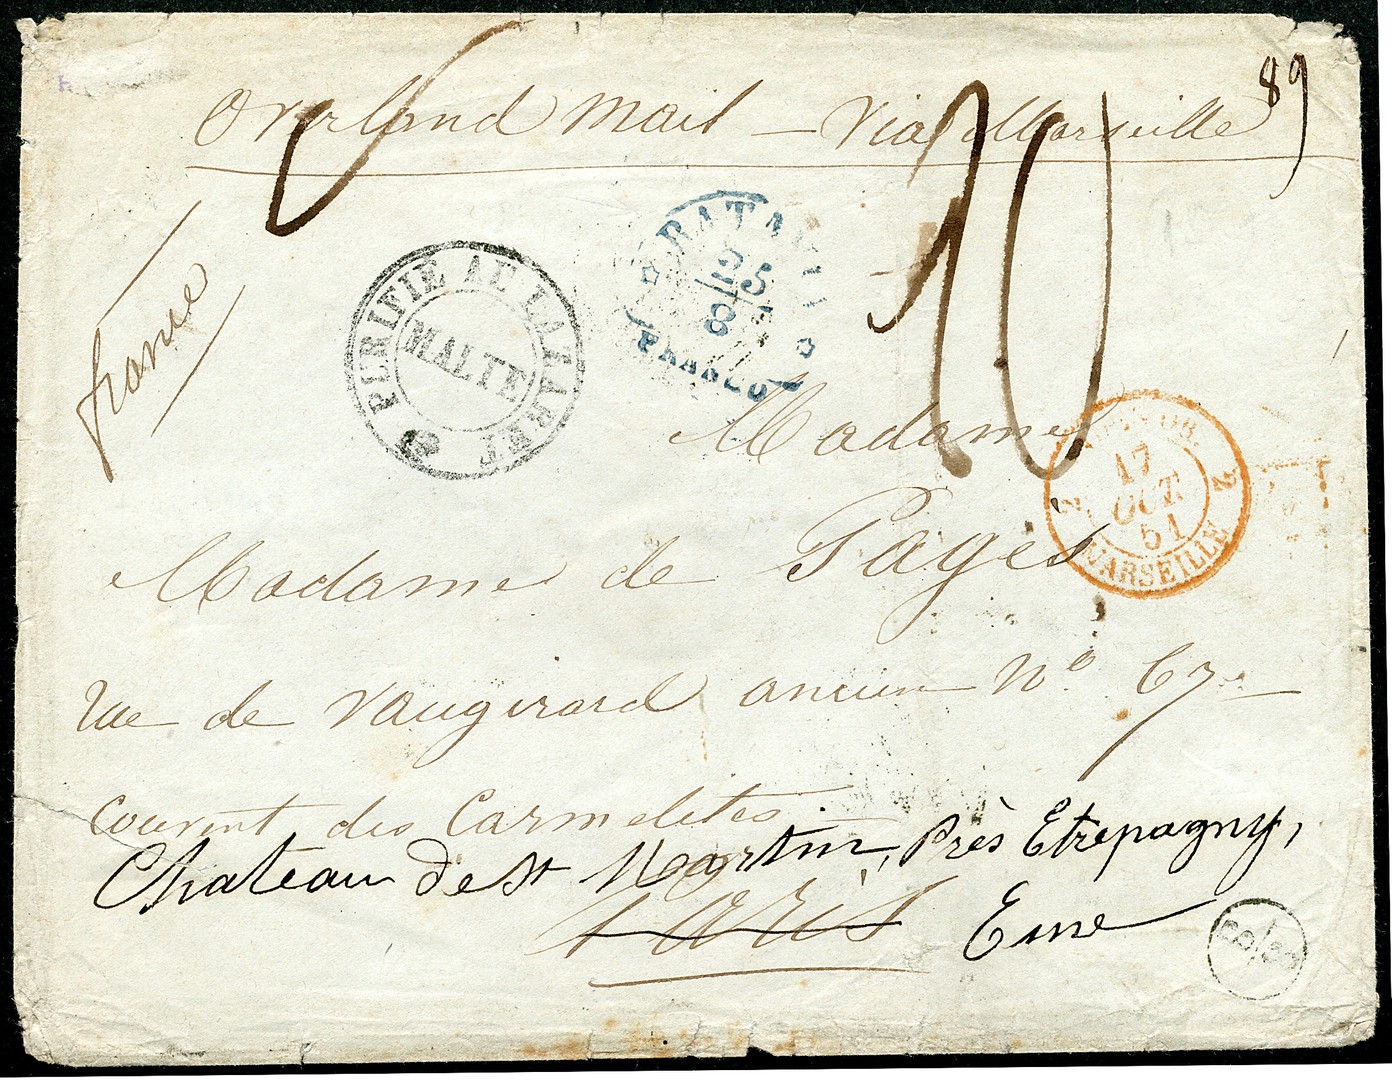 89
Overland Mail — Via Marseille
france
10
PURIFIÉ AU LAZARET
MALTE
BATAVIA
25
8
FRANCO
17
OCT.
51
2 2
MARSEILLE
Madame
Madame de Pages
rue de Vaugirard ancien No 67
Couvent des Carmelites
Chateau de St Martin, Près Etrepagny,
Paris
Eure